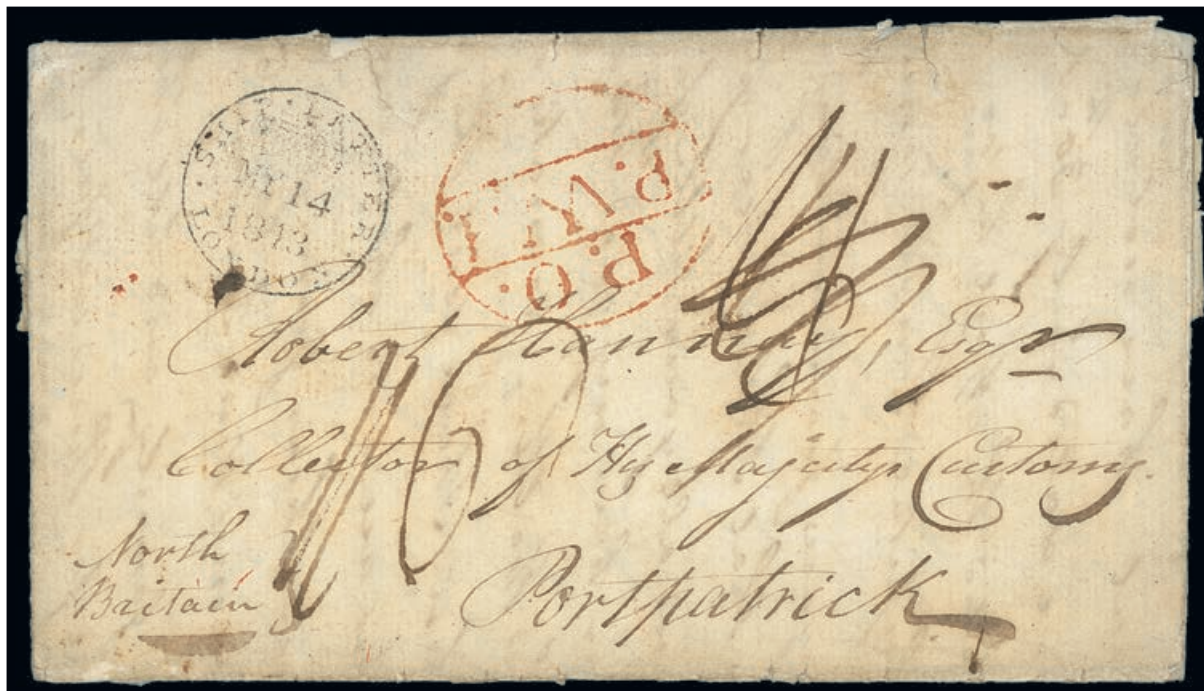 SHIP·LETTER
MY 14
1813
LONDON
P.W.I.
P.O.
Robert Hannay, Esqr
Collector of His Majestys Customs.
North
Britain
Portpatrick